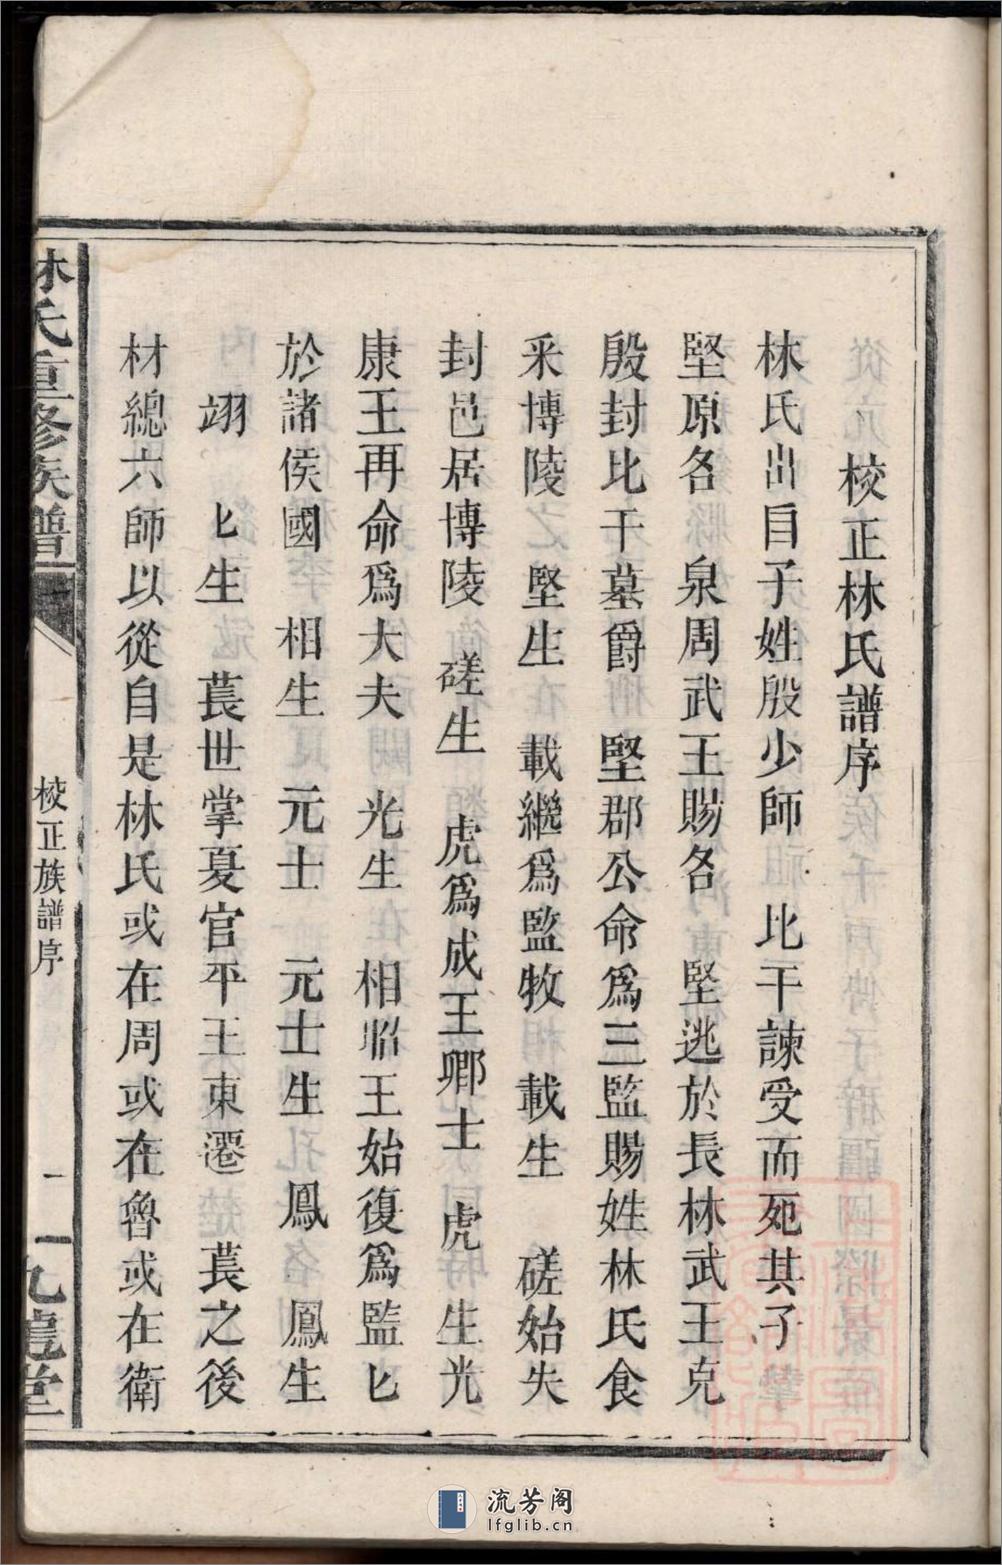 校正林氏譜序
林氏出自子姓殷少師　比干諫受而死其子
堅原名　泉周武王賜名　堅逃於長林武王克
殷封比干墓爵　堅郡公命爲三監賜姓林氏食
采博陵　堅生　載繼爲監牧　載生　磋始失
封邑居博陵　磋生　虎爲成王卿士　虎生光
康王再命爲大夫　光生　相昭王始復爲監匕
於諸侯國　相生　元士　元士生　鳳　鳳生
　翊　匕生　萇世掌夏官平王東遷　萇之後
材總六師以從自是林氏或在周或在魯或在衛
林氏重修族譜
校正族譜序
一
九龍堂
流芳阁
lfglib.cn